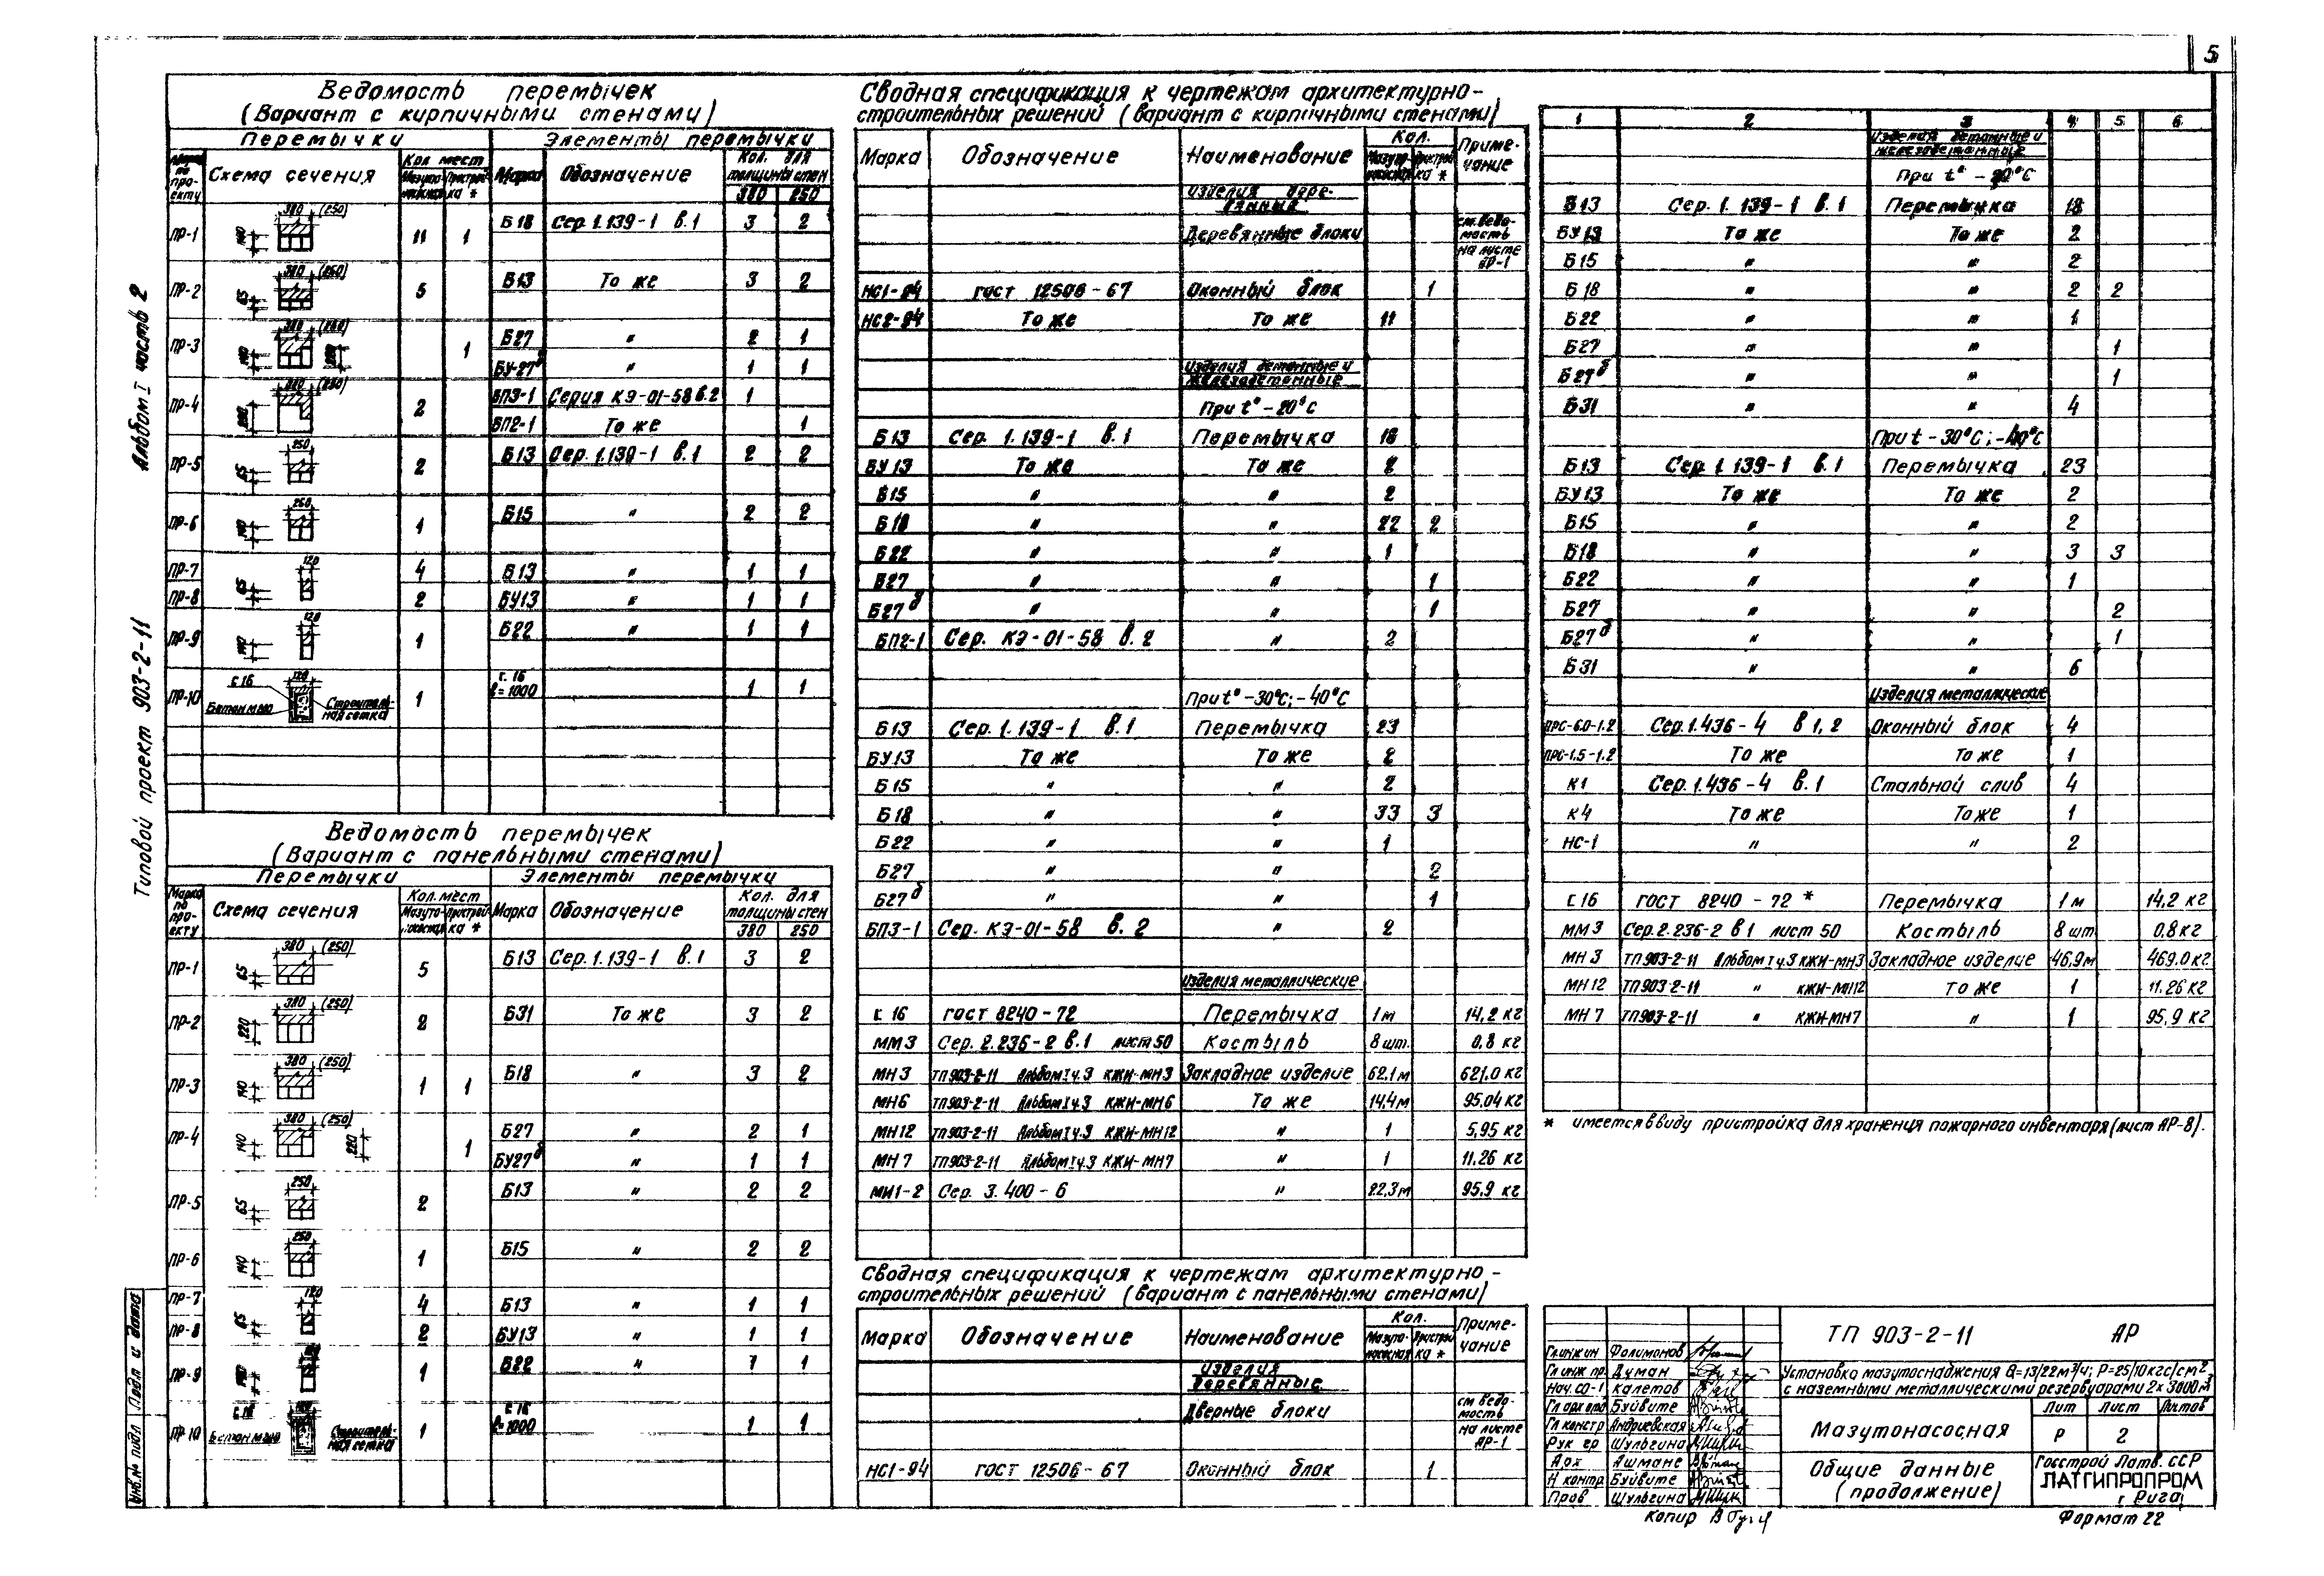 5
Альбом I часть 2
Типовой проект 903-2-11
Инв.№ подл Подп и дата
Ведомость перемычек
(Вариант с кирпичными стенами)
Перемычки Элементы перемычки
Марка по проекту Схема сечения Кол мест Мазутонасосная Пристройка * Марка Обозначение Кол. для толщины стен 380 250
ПР-1 380 (250) 140 11 1 Б18 Сер. 1.139-1 в.1 3 2
ПР-2 380 (250) 65 5 Б13 То же 3 2
ПР-3 380 (250) 140 220 1 Б27 " 2 1
БУ-27б " 1 1
ПР-4 380 (250) 2 БП3-1 Серия КЭ-01-58 в.2 1
БП2-1 То же 1
ПР-5 250 65 2 Б13 Сер. 1.139-1 в.1 2 2
ПР-6 250 140 1 Б15 " 2 2
ПР-7 120 65 4 Б13 " 1 1
ПР-8 2 БУ13 " 1 1
ПР-9 120 140 1 Б22 " 1 1
ПР-10 с 16 120 Бетон М100 Строительная сетка 1 с. 16 ℓ=1000 1 1
Ведомость перемычек
(Вариант с панельными стенами)
Перемычки Элементы перемычки
Марка по проекту Схема сечения Кол. мест Мазутонасосная Пристройка * Марка Обозначение Кол. для толщины стен 380 250
ПР-1 380 (250) 65 5 Б13 Сер. 1.139-1 в.1 3 2
ПР-2 380 (250) 220 2 Б31 То же 3 2
ПР-3 380 (250) 140 1 1 Б18 " 3 2
ПР-4 380 (250) 140 220 1 Б27 " 2 1
БУ27б " 1 1
ПР-5 250 65 2 Б13 " 2 2
ПР-6 250 140 1 Б15 " 2 2
ПР-7 120 65 4 Б13 " 1 1
ПР-8 2 БУ13 " 1 1
ПР-9 140 1 Б22 " 1 1
ПР 10 с 16 Бетон М100 Строительная сетка 1 с 16 ℓ=1000 1 1
Сводная спецификация к чертежам архитектурно-
строительных решений (вариант с кирпичными стенами)
Марка Обозначение Наименование Кол. Мазутонасосная Пристройка * Примечание
Изделия деревянные
Деревянные блоки см. ведомость на листе АР-1
НС1-94 ГОСТ 12506-67 Оконный блок 1
НС2-94 То же То же 11
Изделия бетонные и железобетонные
При t° -20°С
Б13 Сер. 1.139-1 в.1 Перемычка 18
БУ 13 То же То же 2
Б15 " " 2
Б18 " " 22 2
Б22 " " 1
Б27 " " 1
Б27б " " 1
БП2-1 Сер. КЭ-01-58 в. 2 " 2
При t° -30°С; -40°С
Б13 Сер. 1.139-1 в.1 Перемычка 23
БУ13 То же То же 2
Б15 " " 2
Б18 " " 33 3
Б22 " " 1
Б27 " " 2
Б27б " " 1
БП3-1 Сер. КЭ-01-58 в. 2 " 2
Изделия металлические
с 16 ГОСТ 8240-72 Перемычка 1 м 14,2 кг
ММ3 Сер. 2.236-2 в.1 лист 50 Костыль 8 шт. 0,8 кг
МН3 ТП903-2-11 Альбом I ч.3 КЖИ-МН3 Закладное изделие 62,1 м 621,0 кг
МН6 ТП903-2-11 Альбом I ч.3 КЖИ-МН6 То же 14,4 м 95,04 кг
МН12 ТП903-2-11 Альбом I ч.3 КЖИ-МН12 " 1 5,95 кг
МН7 ТП903-2-11 Альбом I ч.3 КЖИ-МН7 " 1 11,26 кг
МИ1-2 Сер. 3.400-6 " 22,3 м 95,9 кг
Сводная спецификация к чертежам архитектурно-
строительных решений (вариант с панельными стенами)
Марка Обозначение Наименование Кол. Мазутонасосная Пристройка * Примечание
Изделия деревянные
Дверные блоки см ведомость на листе АР-1
НС1-94 ГОСТ 12506-67 Оконный блок 1
1 2 3 4 5 6
Изделия бетонные и железобетонные
При t° -20°С
Б13 Сер. 1.139-1 в.1 Перемычка 18
БУ13 То же То же 2
Б15 " " 2
Б18 " " 2 2
Б22 " " 1
Б27 " " 1
Б27б " " 1
Б31 " " 4
При t -30°С; -40°С
Б13 Сер. 1.139-1 в.1 Перемычка 23
БУ13 То же То же 2
Б15 " " 2
Б18 " " 3 3
Б22 " " 1
Б27 " " 2
Б27б " " 1
Б31 " " 6
Изделия металлические
ПРС-6.0-1.2 Сер. 1.436-4 в 1, 2 Оконный блок 4
ПРС-1.5-1.2 То же То же 1
К1 Сер. 1.436-4 в.1 Стальной слив 4
К4 То же То же 1
НС-1 " " 2
с 16 ГОСТ 8240-72 * Перемычка 1 м 14,2 кг
ММ3 Сер. 2.236-2 в 1 лист 50 Костыль 8 шт 0,8 кг
МН 3 ТП903-2-11 Альбом I ч.3 КЖИ-МН3 Закладное изделие 46,9 м 469.0 кг
МН 12 ТП903-2-11 " КЖИ-МН12 То же 1 11.26 кг
МН 7 ТП903-2-11 " КЖИ-МН7 " 1 95,9 кг
* имеется ввиду пристройка для хранения пожарного инвентаря (лист АР-8).
ТП 903-2-11 АР
Установка мазутоснабжения Q-13/22м³/ч; Р=25/10кгс/см²
с наземными металлическими резервуарами 2х3000м³
Гл.инж ин Фолимонов
Гл инж пр. Думан
Нач. СО-1 Калетов
Гл арх отд Буйвите
Гл констр Андриевская
Рук гр Шульгина
Арх Ашмане
Н контр Буйвите
Пров Шульгина
Мазутонасосная
Лит Лист Листов
Р 2
Общие данные
(продолжение)
Госстрой Латв. ССР
ЛАТГИПРОПРОМ
г Рига
Копир
Формат 22